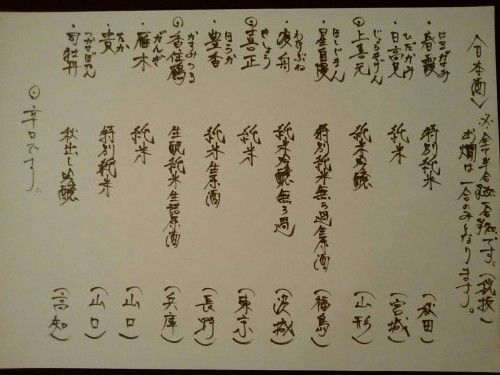 〈日本酒〉 ※全て半合 一合 です。(税抜)
お燗は一合のみとなります。
はるかすみ
・春霞 特別純米 (秋田)
ひだかみ
・日高見 純米 (宮城)
じょうきげん
◎上喜元 純米吟醸 (山形)
ほしじまん
・星自慢 特別純米無ろ過生原酒 (福島)
わたりぶね
・渡舟 純米吟醸無ろ過 (茨城)
きしょう
◎喜正 純米 (東京)
ほうか
・豊香 純米生原酒 (長野)
かすみつる
◎香住鶴 生酛純米生詰原酒 (兵庫)
がんぎ
・雁木 純米 (山口)
たか
・貴 特別純米 (山口)
つかさぼたん
・司牡丹 秋出し吟醸 (高知)
◎辛口です。